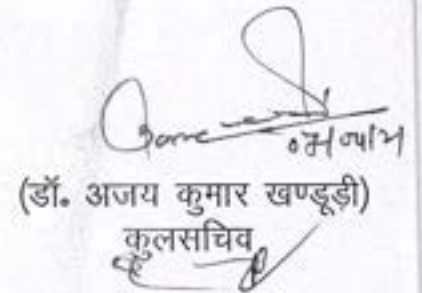 (डॉ. अजय कुमार खण्डूड़ी)
कुलसचिव